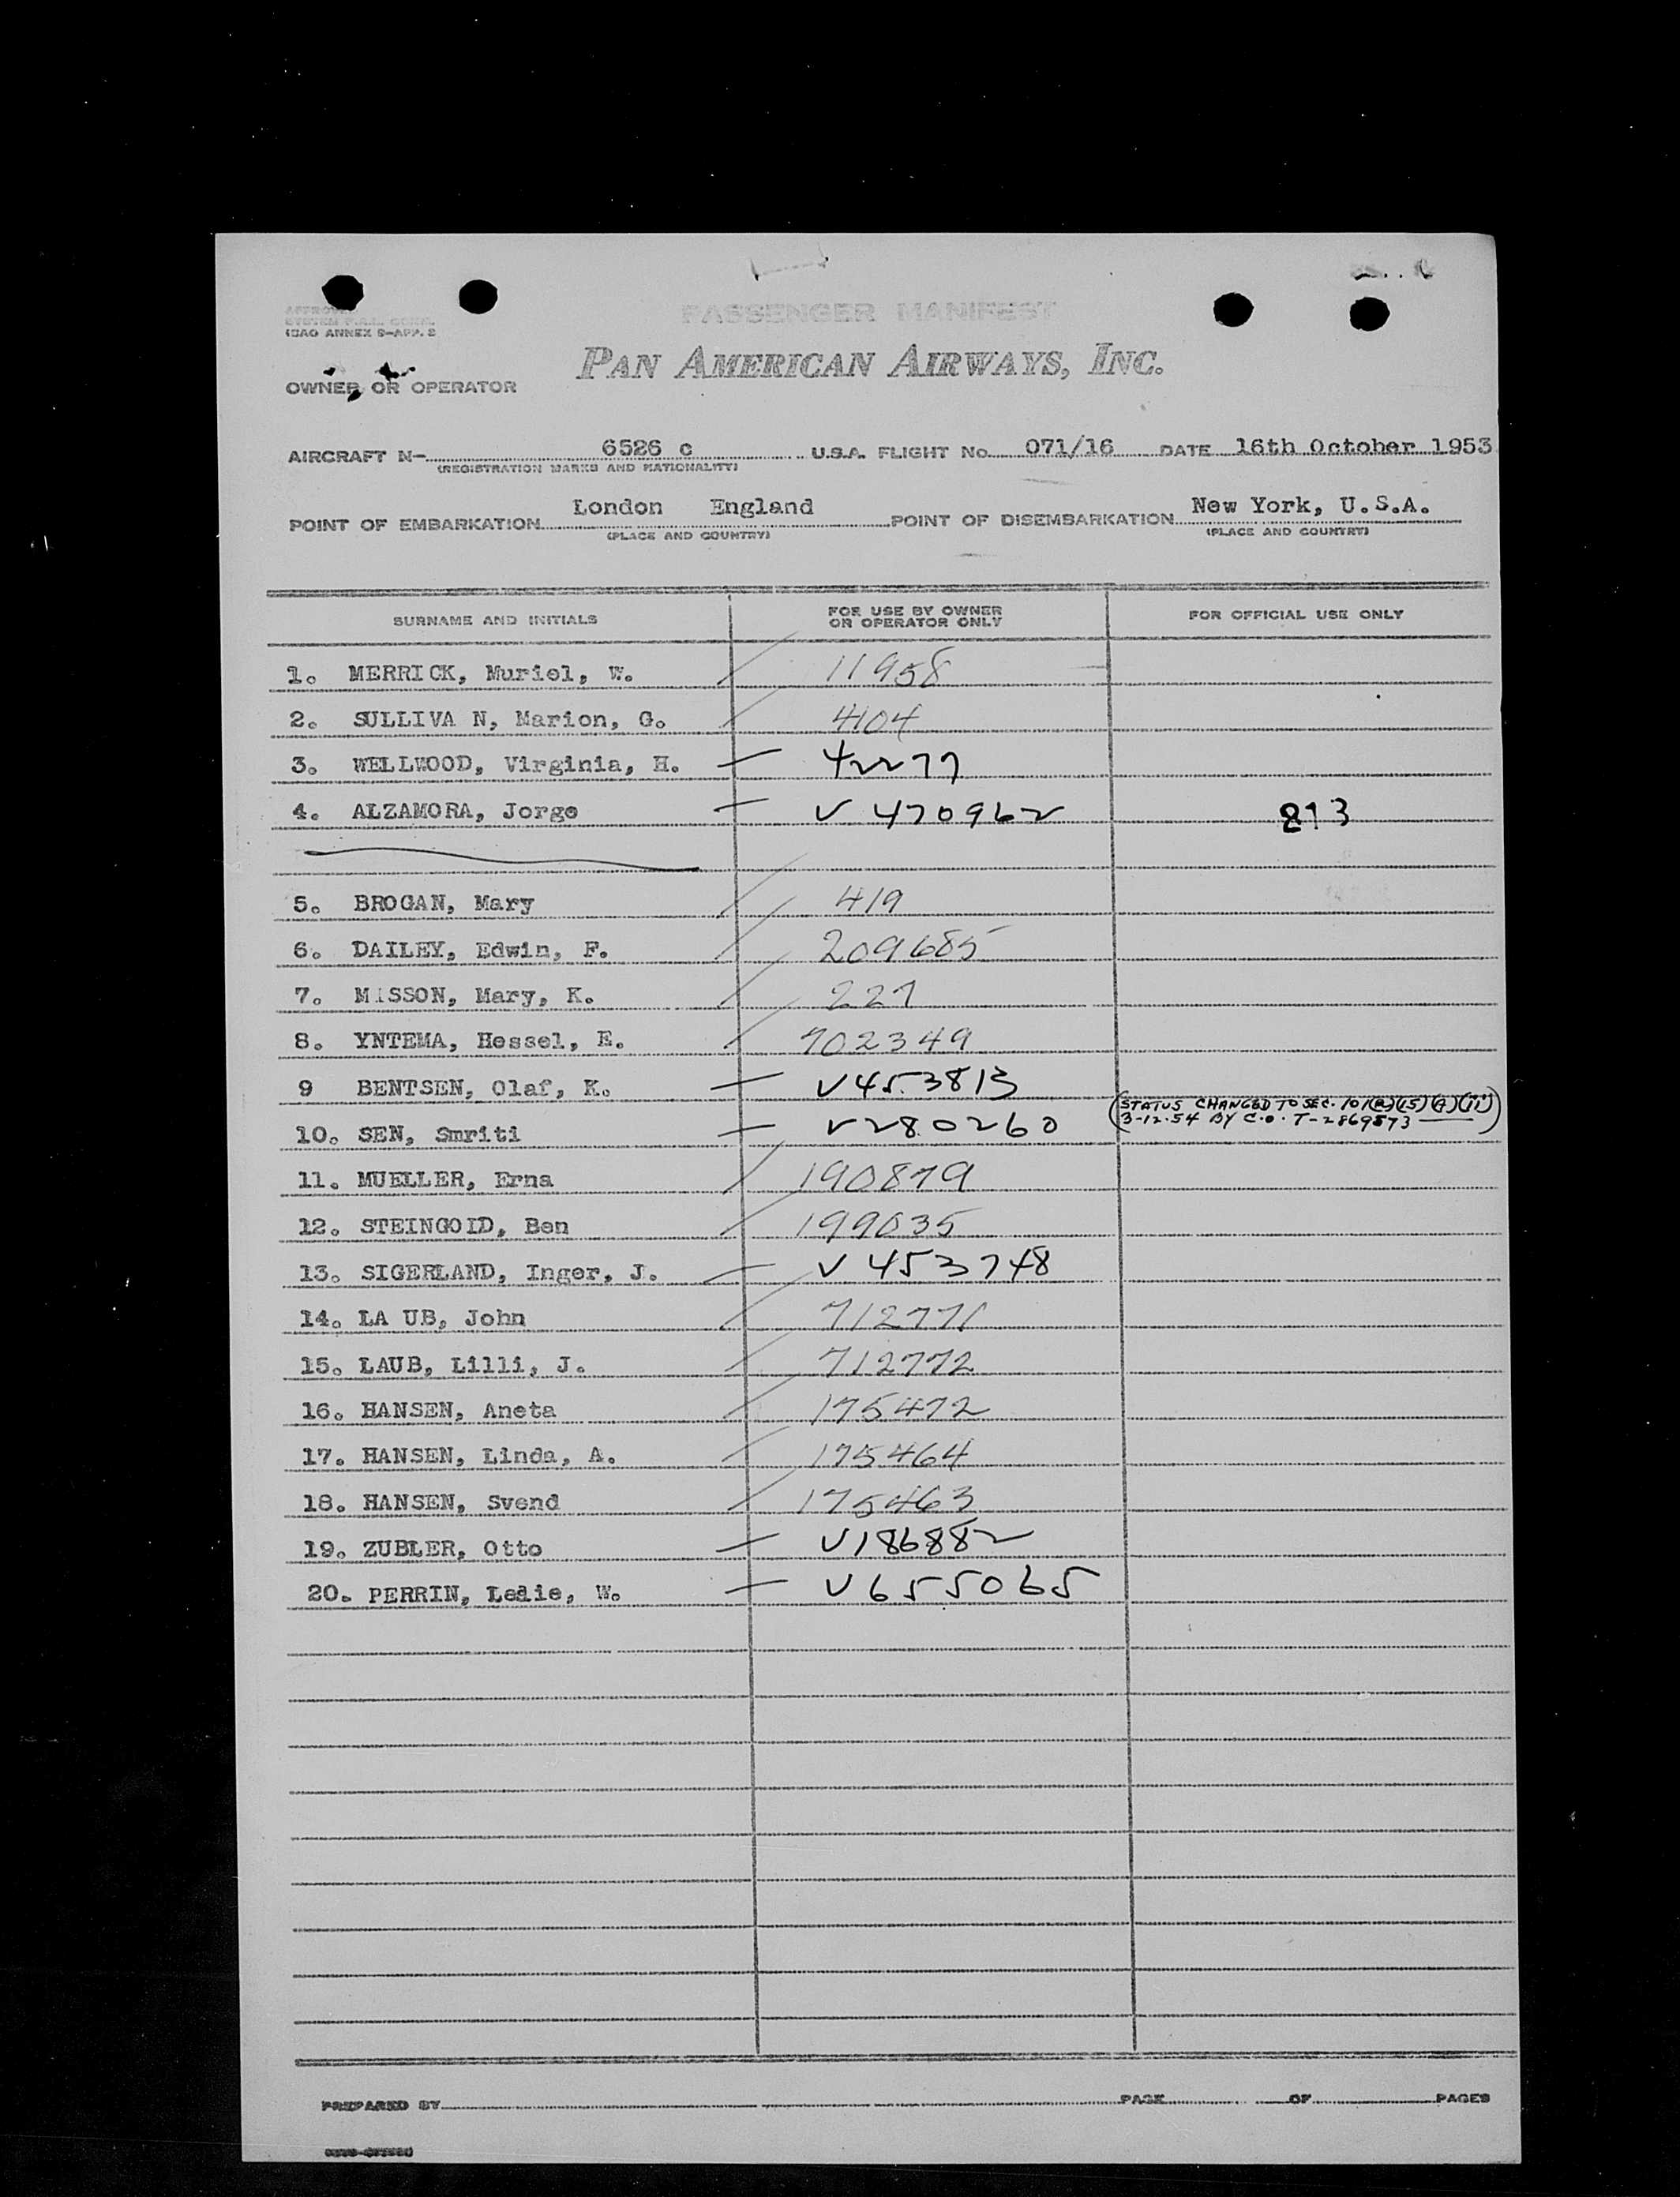 PASSENGER MANIFEST
ICAO ANNEX 9-APP. 2
PAN AMERICAN AIRWAYS, INC.
OWNER OR OPERATOR
AIRCRAFT N- 6526 C U.S.A. FLIGHT No. 071/16 DATE 16th October 1953
(REGISTRATION MARKS AND NATIONALITY)
POINT OF EMBARKATION London England POINT OF DISEMBARKATION New York, U.S.A.
(PLACE AND COUNTRY) (PLACE AND COUNTRY)
SURNAME AND INITIALS FOR USE BY OWNER OR OPERATOR ONLY FOR OFFICIAL USE ONLY
1. MERRICK, Muriel, W. 11958
2. SULLIVA N, Marion, G. 4104
3. WELLWOOD, Virginia, H. 42277
4. ALZAMORA, Jorge V 470962 813
5. BROGAN, Mary 419
6. DAILEY, Edwin, F. 209685
7. MISSON, Mary, K. 227
8. YNTEMA, Hessel, E. 702349
9 BENTSEN, Olaf, K. V453813
(STATUS CHANGED TO SEC. 101(a)(15)(G)(ii)
10. SEN, Smriti V280260 3-12-54 BY C.O. T-2869573)
11. MUELLER, Erna 190879
12. STEINGOLD, Ben 199035
13. SIGERLAND, Inger, J. V 453748
14. LA UB, John 712771
15. LAUB, Lilli, J. 712772
16. HANSEN, Aneta 175472
17. HANSEN, Linda, A. 175464
18. HANSEN, Svend 175463
19. ZUBLER, Otto V186882
20. PERRIN, Leslie, W. V655065
PREPARED BY PAGE OF PAGES